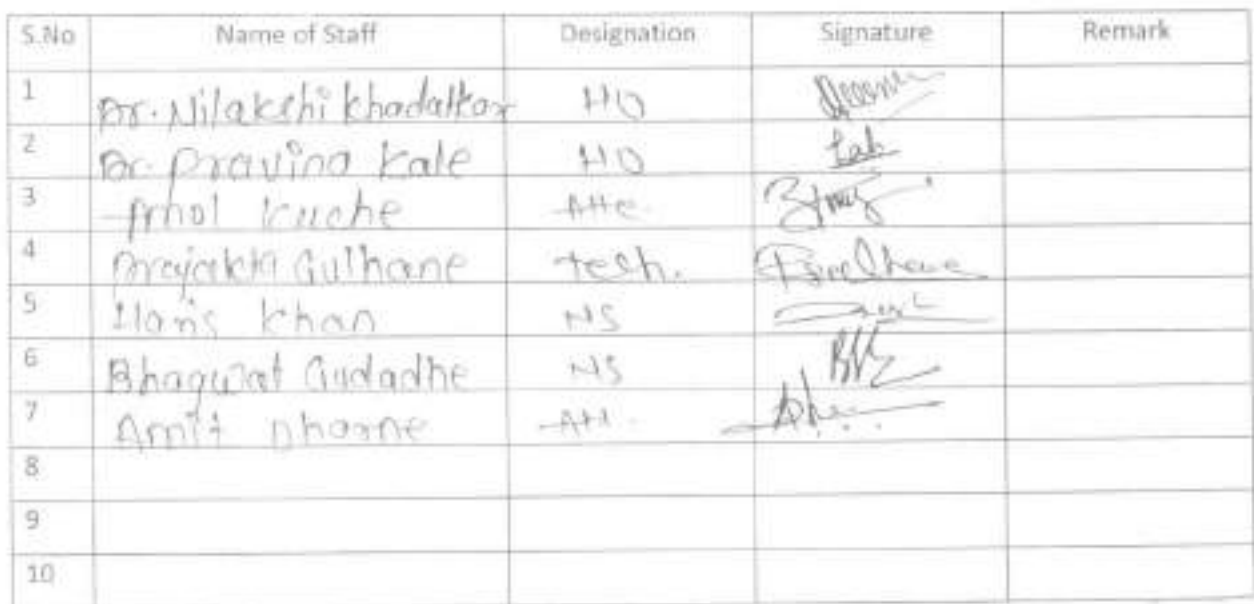 S.No Name of Staff Designation Signature Remark
1 Dr. Nilakshi Khadatkar HO
2 Dr. Pravina Kale HO
3 Amol Kuche Atte.
4 Prajakta Gulhane Tech.
5 Haris Khan NS
6 Bhagwat Gudadhe NS
7 Amit Dhorne Att.
8
9
10